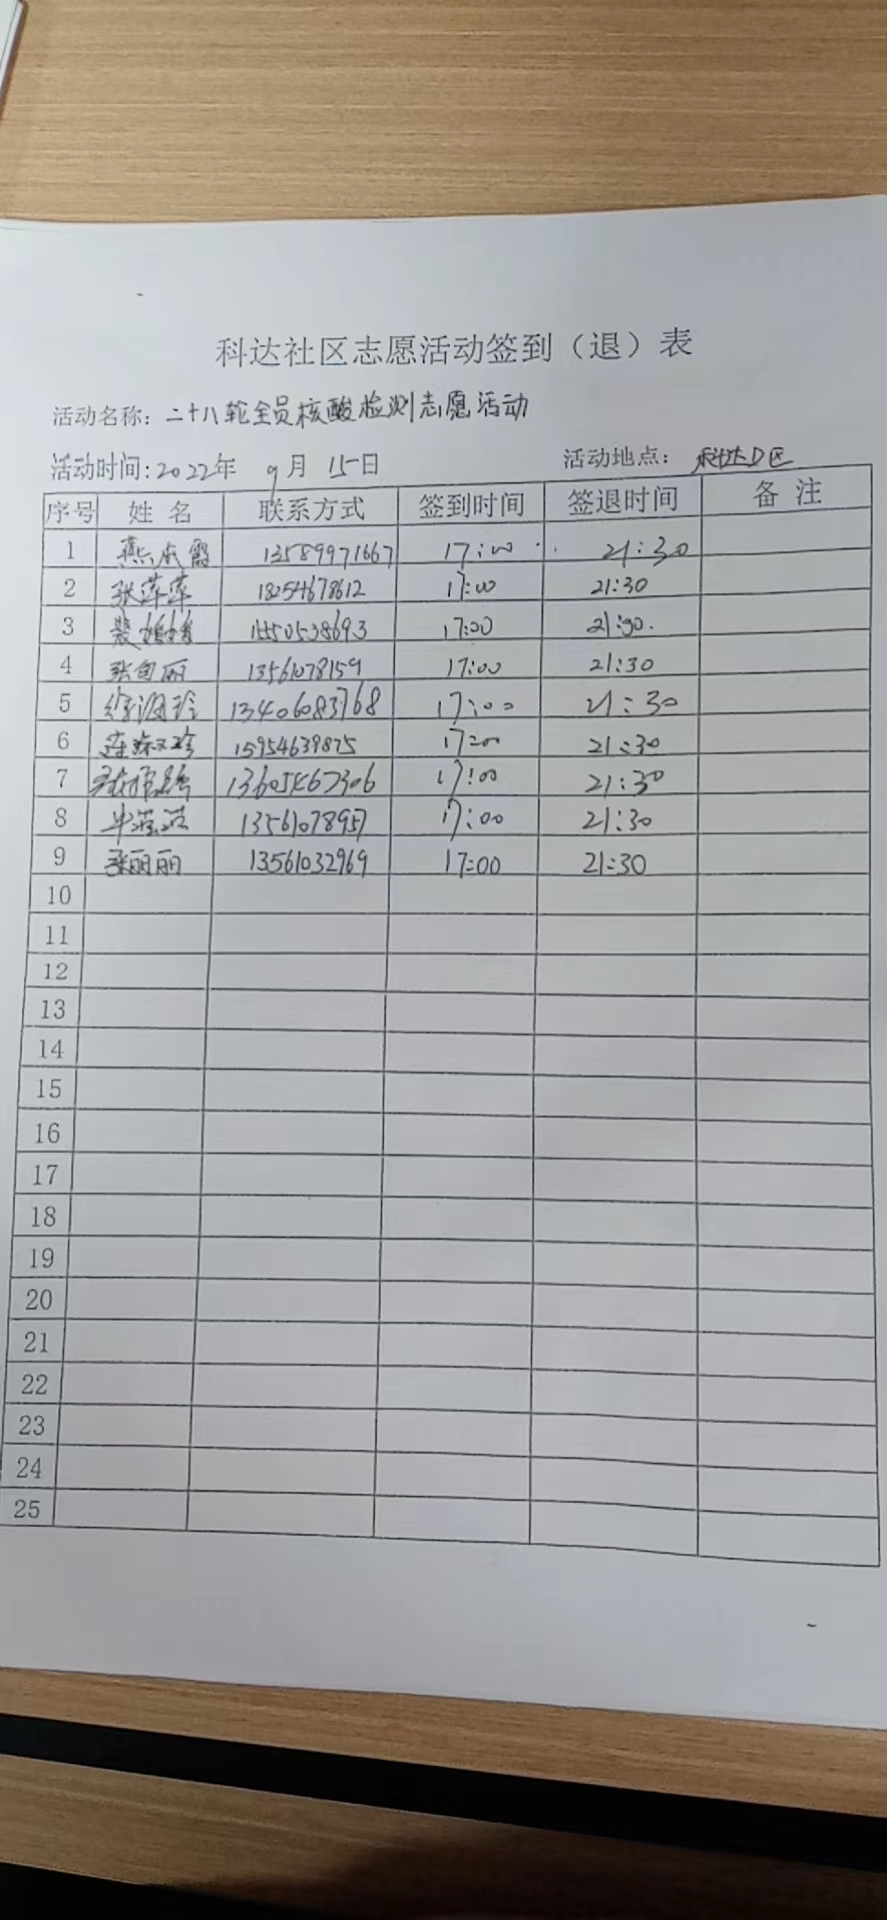 科达社区志愿活动签到（退）表
活动名称：二十八轮全员核酸检测志愿活动
活动时间：2022年 9月 15日 活动地点：科达D区
序号 姓名 联系方式 签到时间 签退时间 备注
1 燕本霞 13589971667 17:00 21:30
2 张萍萍 18254678612 17:00 21:30
3 17:00 21:30
4 张 丽 13561078159 17:00 21:30
5 徐 玲 13406083768 17:00 21:30
6 15954639875 17:00 21:30
7 13605467306 17:00 21:30
8 13561078957 17:00 21:30
9 张丽丽 13561032969 17:00 21:30
10
11
12
13
14
15
16
17
18
19
20
21
22
23
24
25